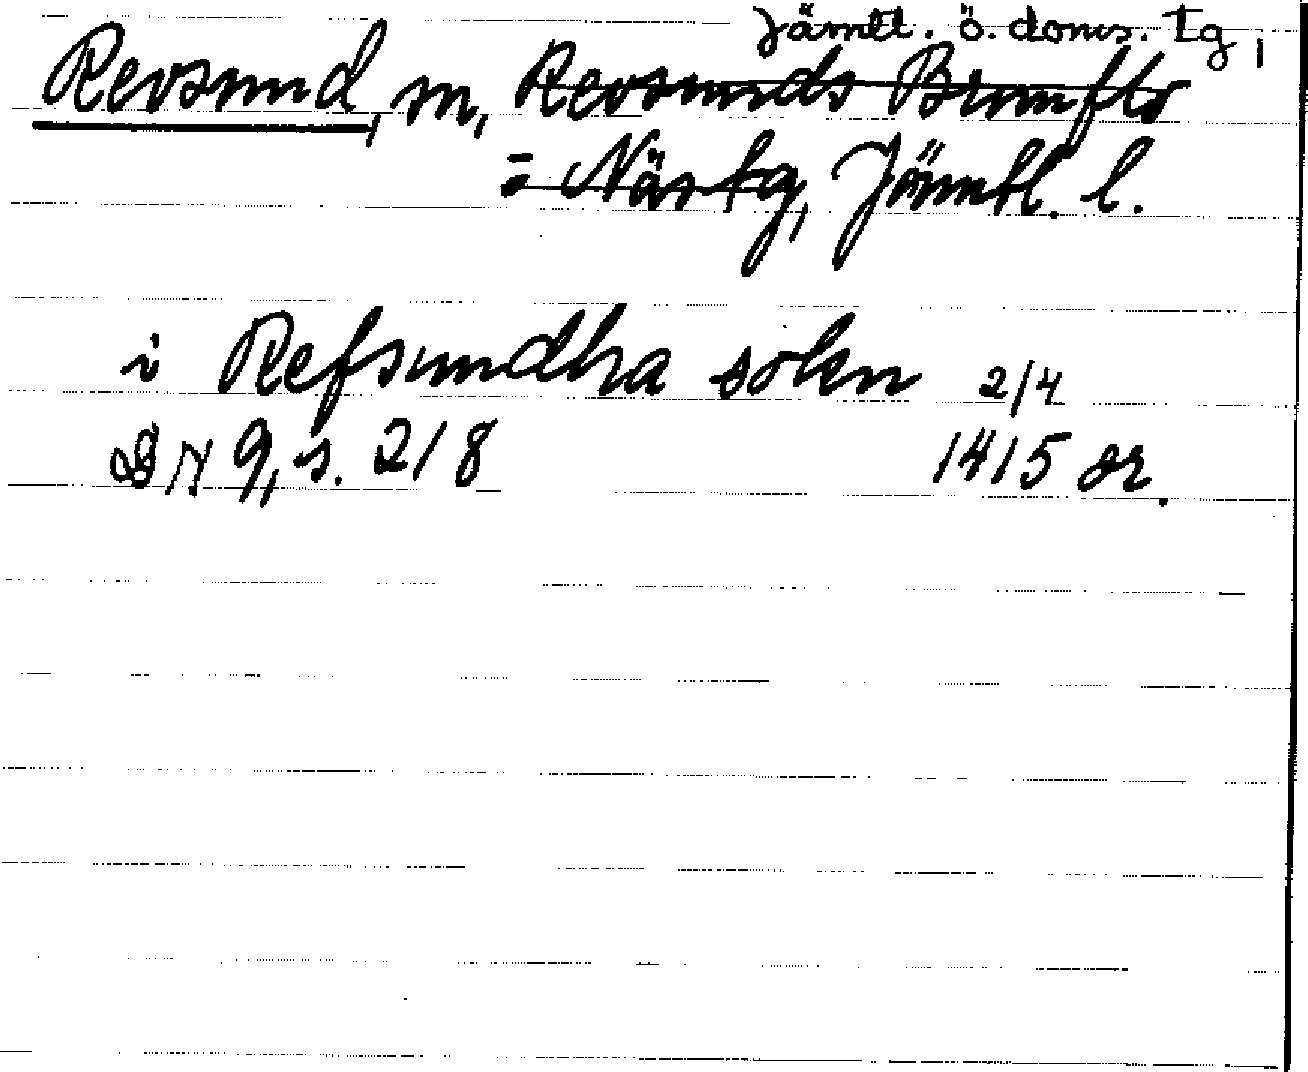 Jämtl. ö. doms. tg,
Revsund, sn, Revsunds Brunflo
= Näs tg, Jämtl. l.
i Refsundha sokn 2/4
DN 9, s. 218 1415 or.